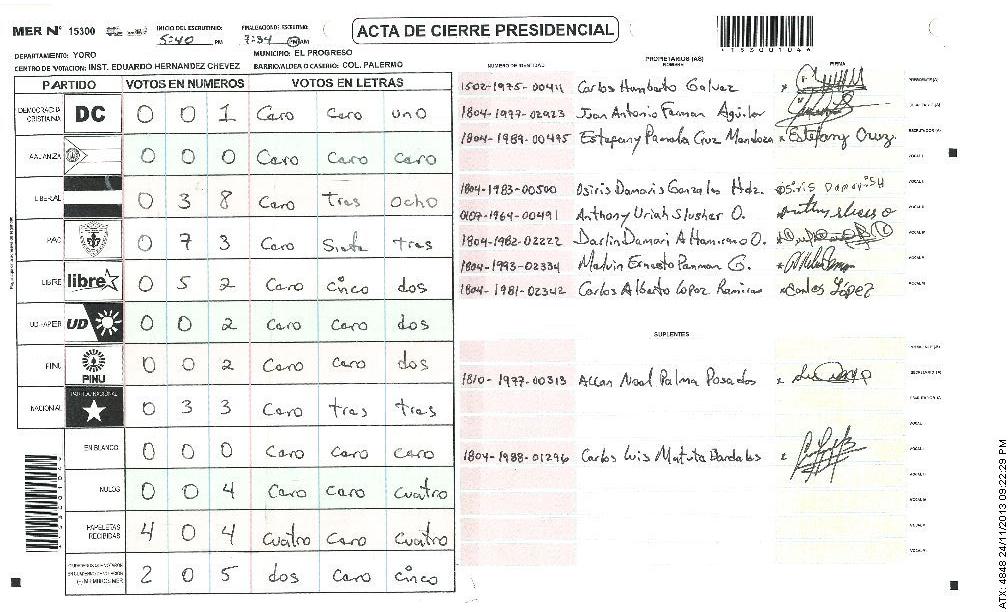 MER N° 15300 INICIO DEL ESCRUTINIO: 5:40 PM FINALIZACION DE ESCRUTINIO: 7:34 PM AM
ACTA DE CIERRE PRESIDENCIAL
DEPARTAMENTO: YORO MUNICIPIO: EL PROGRESO
CENTRO DE VOTACION: INST. EDUARDO HERNANDEZ CHEVEZ BARRIO/ALDEA O CASERIO: COL. PALERMO
PARTIDO VOTOS EN NUMEROS VOTOS EN LETRAS
DEMOCRACIA CRISTIANA DC 0 0 1 Cero Cero uno
ALIANZA 0 0 0 Cero Cero Cero
LIBERAL 0 3 8 Cero Tres ocho
PAC 0 7 3 Cero Siete tres
LIBRE libre 0 5 2 Cero cinco dos
UD UD 0 0 2 Cero Cero dos
PINU PINU 0 0 2 Cero Cero dos
NACIONAL PARTIDO NACIONAL 0 3 3 Cero tres tres
EN BLANCO 0 0 0 Cero Cero Cero
NULOS 0 0 4 Cero Cero cuatro
PAPELETAS RECIBIDAS 4 0 4 cuatro Cero cuatro
2 0 5 dos Cero cinco
PROPIETARIOS (AS)
NUMERO DE IDENTIDAD NOMBRE FIRMA
1502-1975-00411 Carlos Humberto Galvez
1804-1977-02923 Juan Antonio Farman Aguilar
1804-1989-00495 Estefany Pamela Cruz Mendoza Estefany Cruz.
1804-1983-00500 Osiris Damaris Gonzales Hdz.
0107-1964-00491 Anthony Uriah Slusher O.
1804-1982-02222 Darlin Damari Altamirano O.
1804-1993-02334 Melvin Ernesto Panman G.
1804-1981-02342 Carlos Alberto Lopez Ramirez Carlos López
SUPLENTES
1810-1977-00313 Allan Noel Palma Posados
1804-1988-01296 Carlos Luis Matute Bardales
153001044
ATX: 4848 24/11/2013 09:22:29 PM